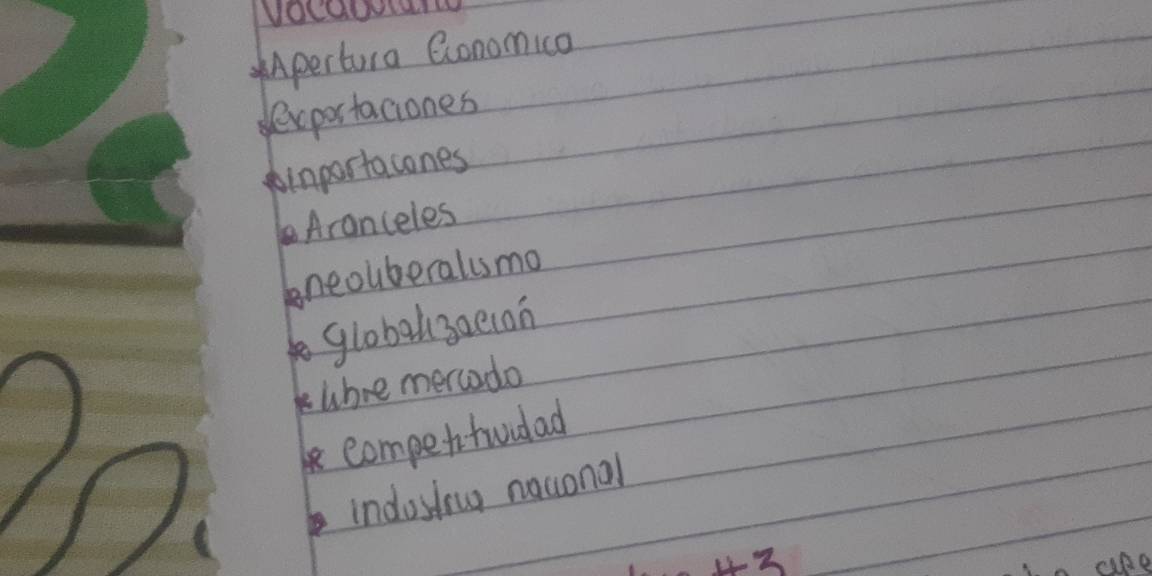 Vocabulario
*Apertura Economica
*exportaciones
*inportacones
*Aranceles
*neoliberalismo
*globalización
*libre mercado
*competitividad
*industria nacional
#3